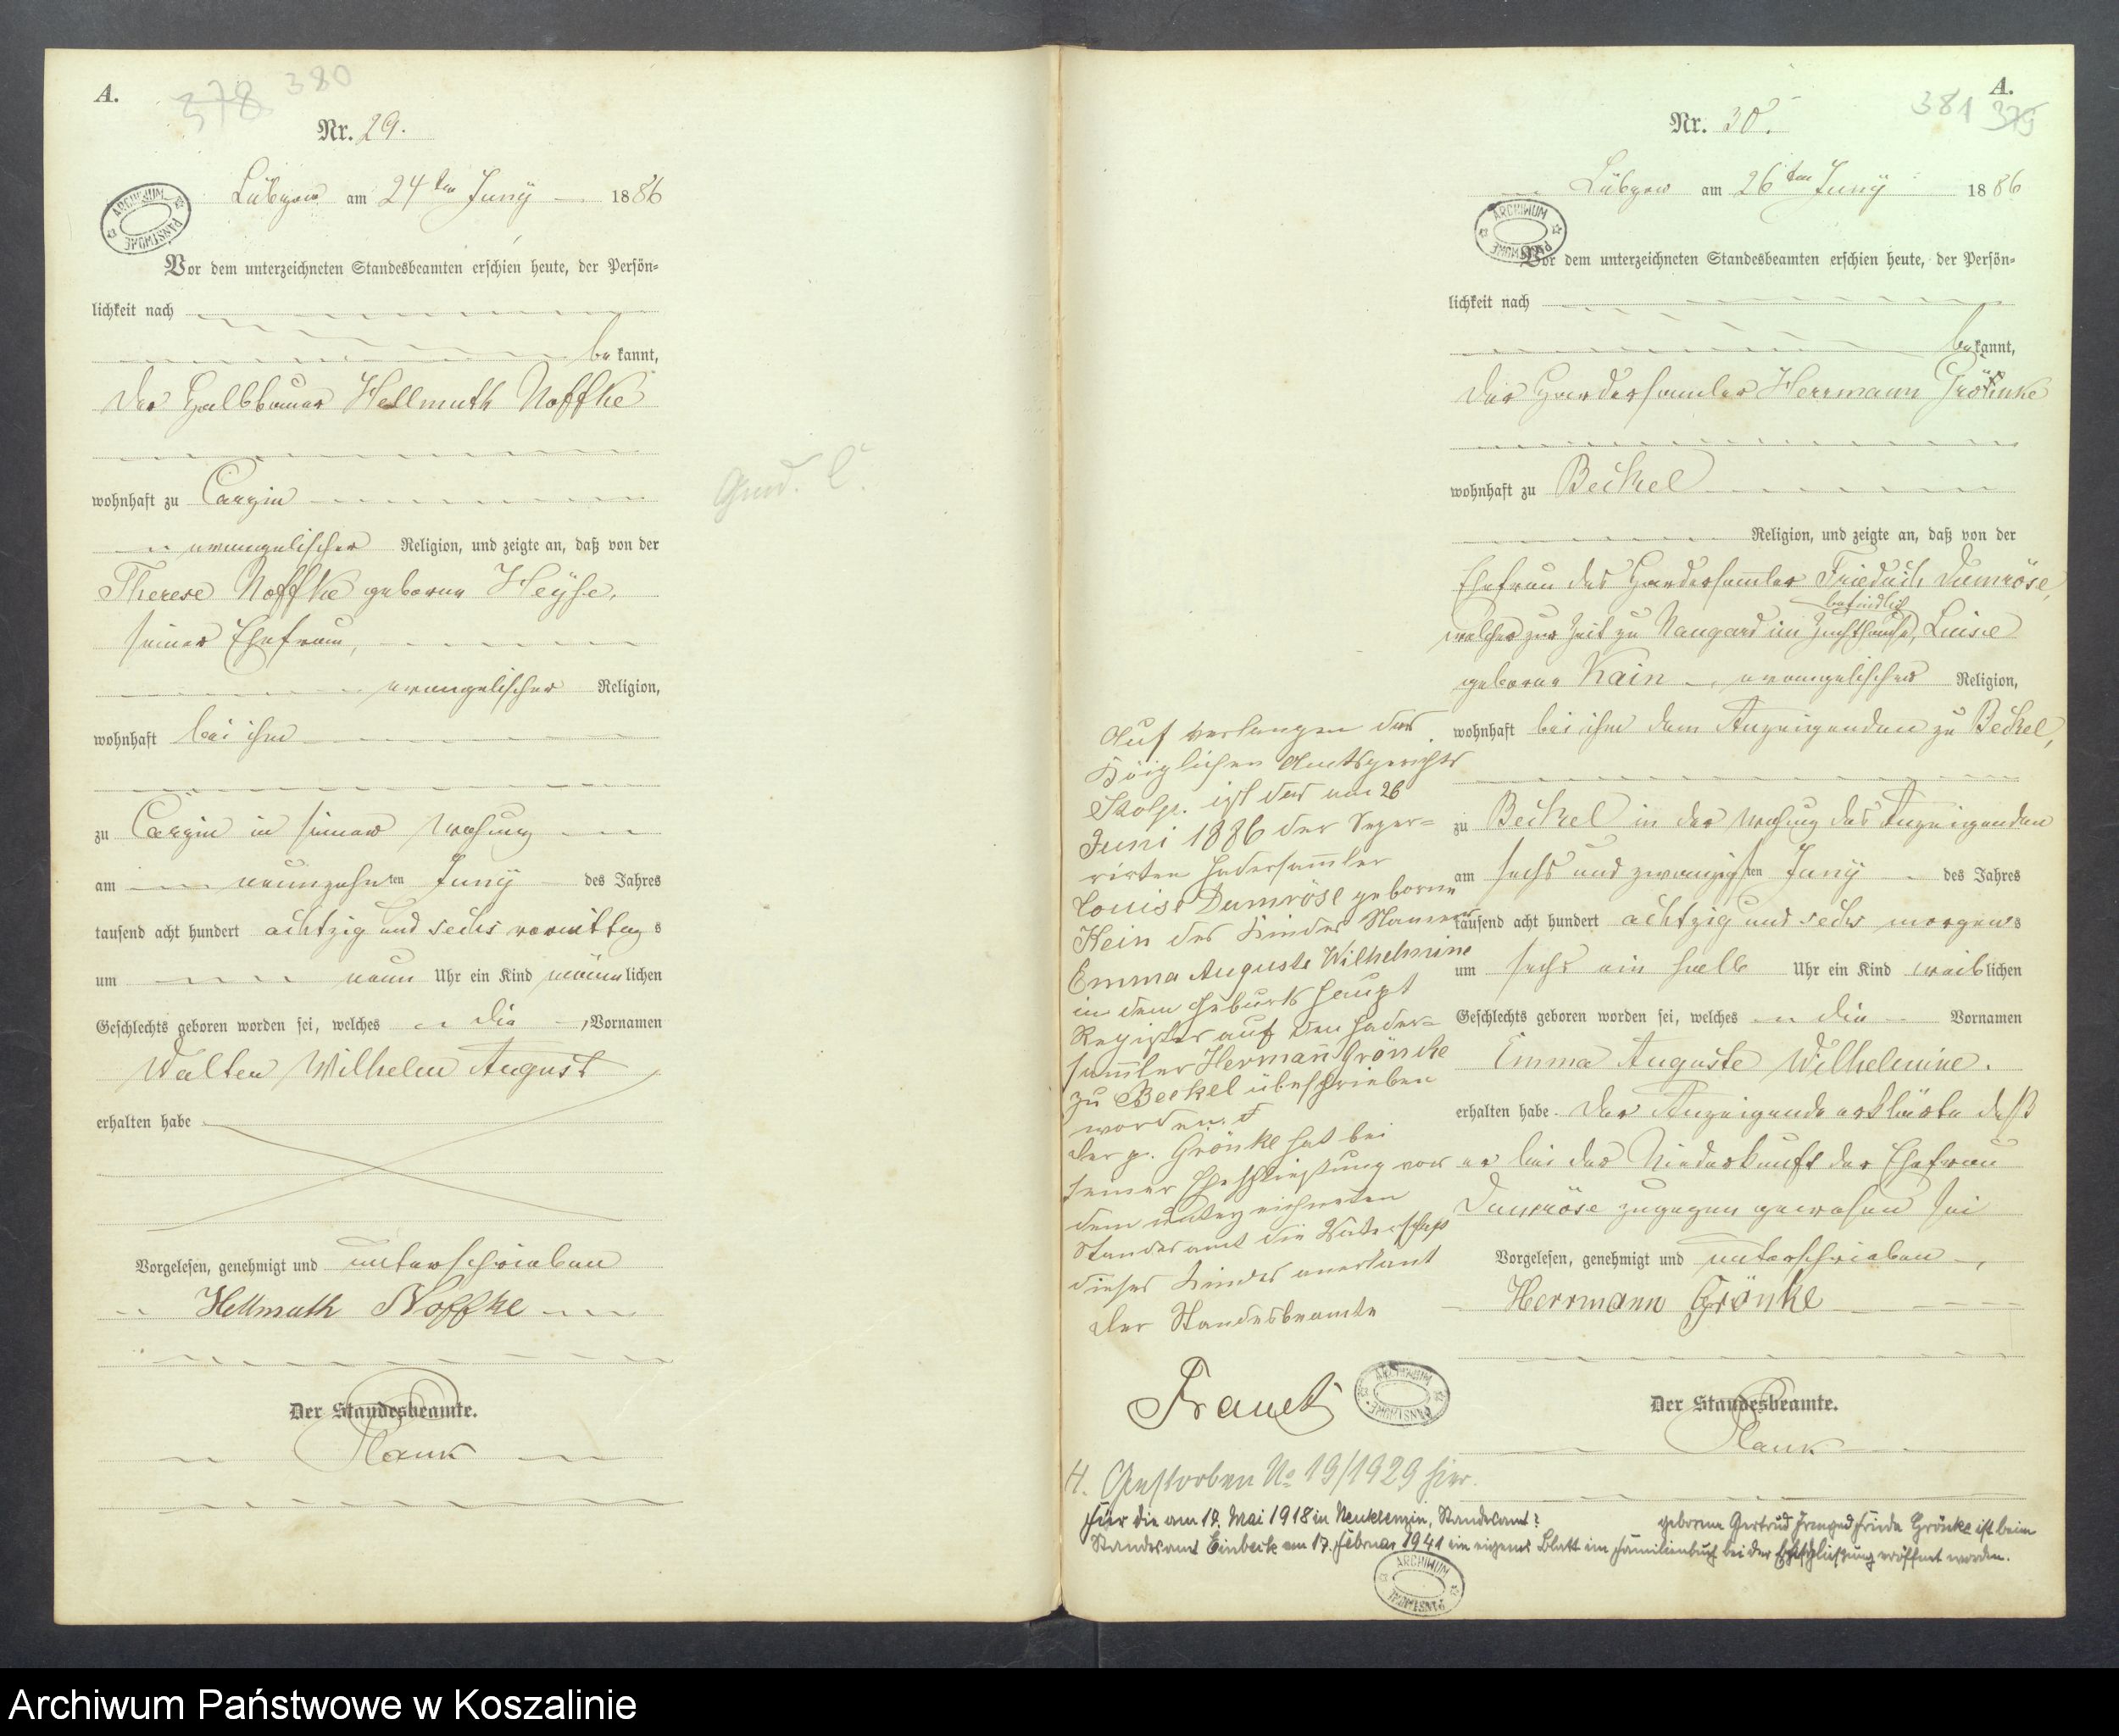 A.
378 380
Nr. 29.
Lübzow am 24ten Juny 1886
ARCHIWUM PAŃSTWOWE
Vor dem unterzeichneten Standesbeamten erschien heute, der Persön-
lichkeit nach
bekannt,
der Halbbauer Hellmuth Noffke
wohnhaft zu Carzin
evangelischer Religion, und zeigte an, daß von der
Therese Noffke geborne Heyse,
seiner Ehefrau,
evangelischer Religion,
wohnhaft bei ihm
zu Carzin in seiner Wohung
am neunzehnten Juny des Jahres
tausend acht hundert achtzig und sechs vormittags
um neun Uhr ein Kind männlichen
Geschlechts geboren worden sei, welches die Vornamen
Walter Wilhelm August
erhalten habe
Vorgelesen, genehmigt und unterschrieben
Hellmuth Noffke
Der Standesbeamte.
Plank
A.
381 379
Nr. 30.
Lübzow am 26ten Juny 1886
ARCHIWUM PAŃSTWOWE
Vor dem unterzeichneten Standesbeamten erschien heute, der Persön-
lichkeit nach
bekannt,
der Hadersamler Herrmann Grönke
wohnhaft zu Beckel
Religion, und zeigte an, daß von der
Ehefrau des Hadersamler Friedrich Dumröse,
befindlich
welcher zur Zeit zu Naugard im Zuchthause, Luise
geborne Kain evangelischer Religion,
wohnhaft bei ihm dem Anzeigenden zu Beckel,
zu Beckel in der Wohung des Anzeigenden
am sechs und zwanzigsten Juny des Jahres
tausend acht hundert achtzig und sechs morgens
um sechs ein halb Uhr ein Kind weiblichen
Geschlechts geboren worden sei, welches die Vornamen
Emma Auguste Wilhelmine.
erhalten habe. Der Anzeigende erklärte daß
er bei der Niederkunft der Ehefrau
Dumröse zugegen gewesen sei
Vorgelesen, genehmigt und unterschrieben
Herrmann Grönke
Der Standesbeamte.
Plank
Auf verlangen des
Köiglichen Amtsgerichts
Stolp. ist das am 26
Juni 1886 der Seper-
rirten Hadersam̄ler
Louise Dumröse geborne
Kein des Kindes Namens
Emma Auguste Wilhelmine
in dem Geburts Haupt
Register auf den Hader-
sam̄ler Hermann Grönke
zu Beckel übeschrieben
worden.
der p. Grönke hat bei
seiner Eheschließung vor
dem unterzeichneten
Standesamt die Vaterschaft
dieses Kindes anerkant
der Standesbeamte
ARCHIWUM PAŃSTWOWE
H. Gestorben No 19/1929 hier.
Für die am 19. Mai 1918 in Neuklenzin, Standesamt? geborene Gertrud Irmgard Frieda Grönke ist beim
Standesamt Einbeck am 17. Februar 1941 ein eigenes Blatt im Familienbuch bei der Eheschließung eröffnet worden.
ARCHIWUM PAŃSTWOWE
Archiwum Państwowe w Koszalinie